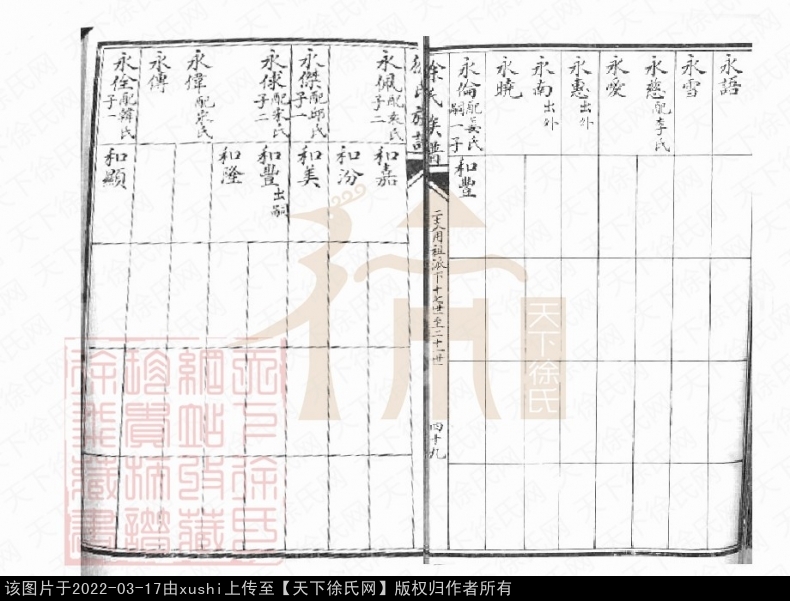 永語
永雪
永慈配李氏
永愛
永惠出外
永南出外
永曉
永倫配吳氏嗣一子
和豐
徐氏族譜
二大人用祖派下十七世至二十一世
四十九
永佩配袁氏子二
和嘉
和汾
永傑配邱氏子一
和美
永俅配宋氏子二
和豐出嗣
和隆
永偉配宋氏
永傳
永佺配韓氏子一
和顯
天下徐氏
该图片于2022-03-17由xushi上传至【天下徐氏网】版权归作者所有